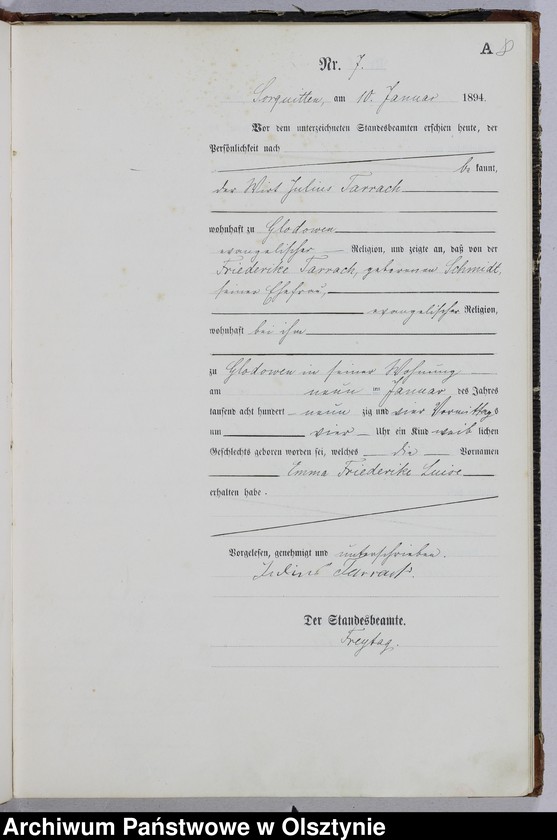 A 8
Nr. 7.
Sorquitten, am 10. Januar 1894.
Vor dem unterzeichneten Standesbeamten erschien heute, der
Persönlichkeit nach
be kannt,
der Wirt Julius Tarrach
wohnhaft zu Glodowen
evangelischer Religion, und zeigte an, daß von der
Friederike Tarrach, geborenen Schmidt,
seiner Ehefrau,
evangelischer Religion,
wohnhaft bei ihm
zu Glodowen in seiner Wohnung
am neun ten Januar des Jahres
tausend acht hundert neun zig und vier Vormittags
um vier Uhr ein Kind weib lichen
Geschlechts geboren worden sei, welches die Vornamen
Emma Friederike Luise
erhalten habe.
Vorgelesen, genehmigt und unterschrieben.
Julius Tarrach.
Der Standesbeamte.
Freytag.
Archiwum Państwowe w Olsztynie